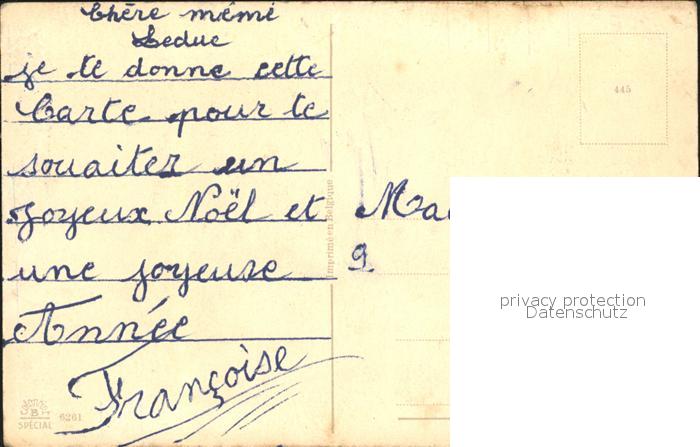 Chère mémé
Leduc
je te donne cette
Carte pour te
souaiter un
Joyeux Noël et
une joyeuse
Année
Françoise
SPÉCIAL
6261
Imprimé en Belgique
445
9
privacy protection
Datenschutz